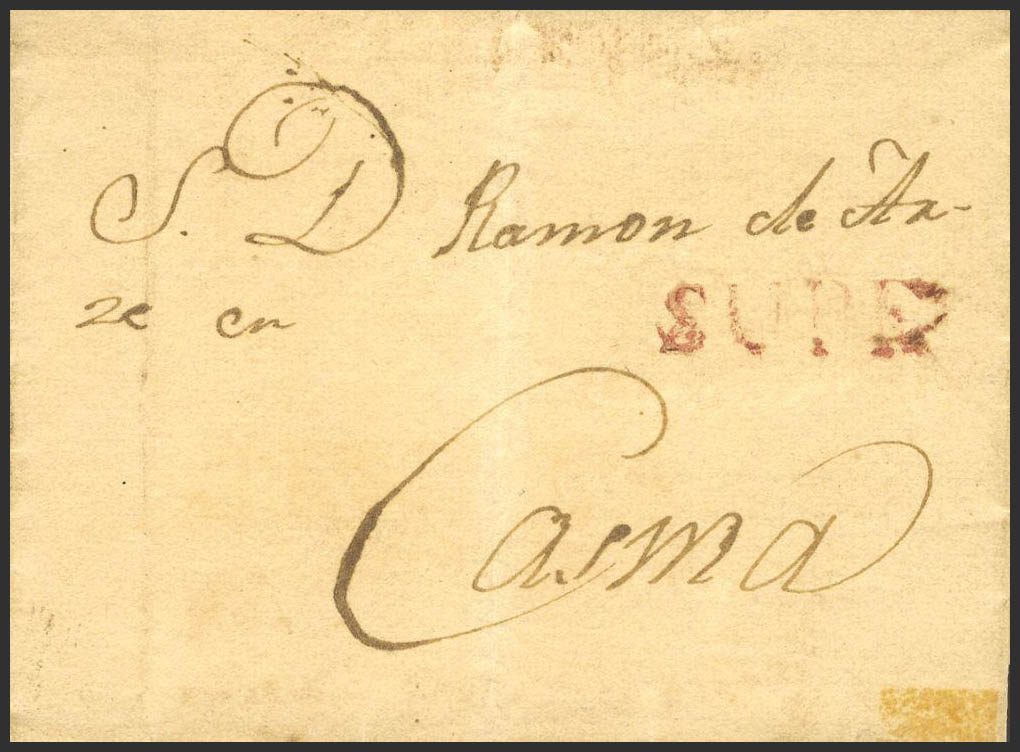 S. D Ramon de Ar-
ze en
SUPE
Casma